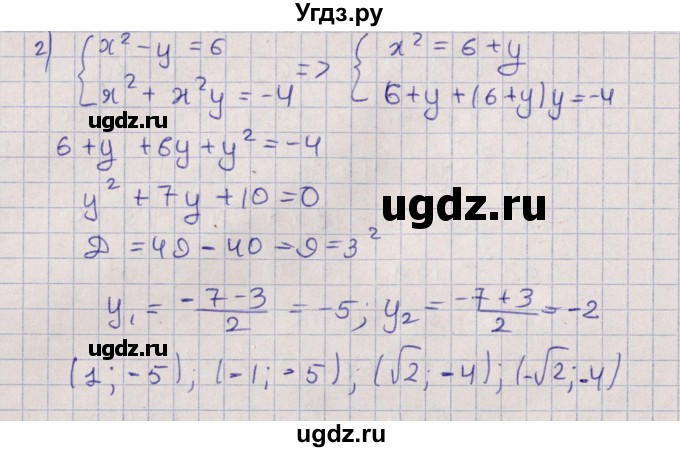 Угдз.ру
2) { x² - y = 6 => { x² = 6 + y
x² + x²y = -4 6 + y + (6 + y)y = -4
ugdz.ru
6 + y + 6y + y² = -4
y² + 7y + 10 = 0
ugdz.ru
ugdz.ru
D = 49 - 40 = 9 = 3²
y₁ = (-7-3)/2 = -5; y₂ = (-7+3)/2 = -2
ugdz.ru
(1; -5); (-1; -5); (√2; -4); (-√2; -4)
ugdz.ru